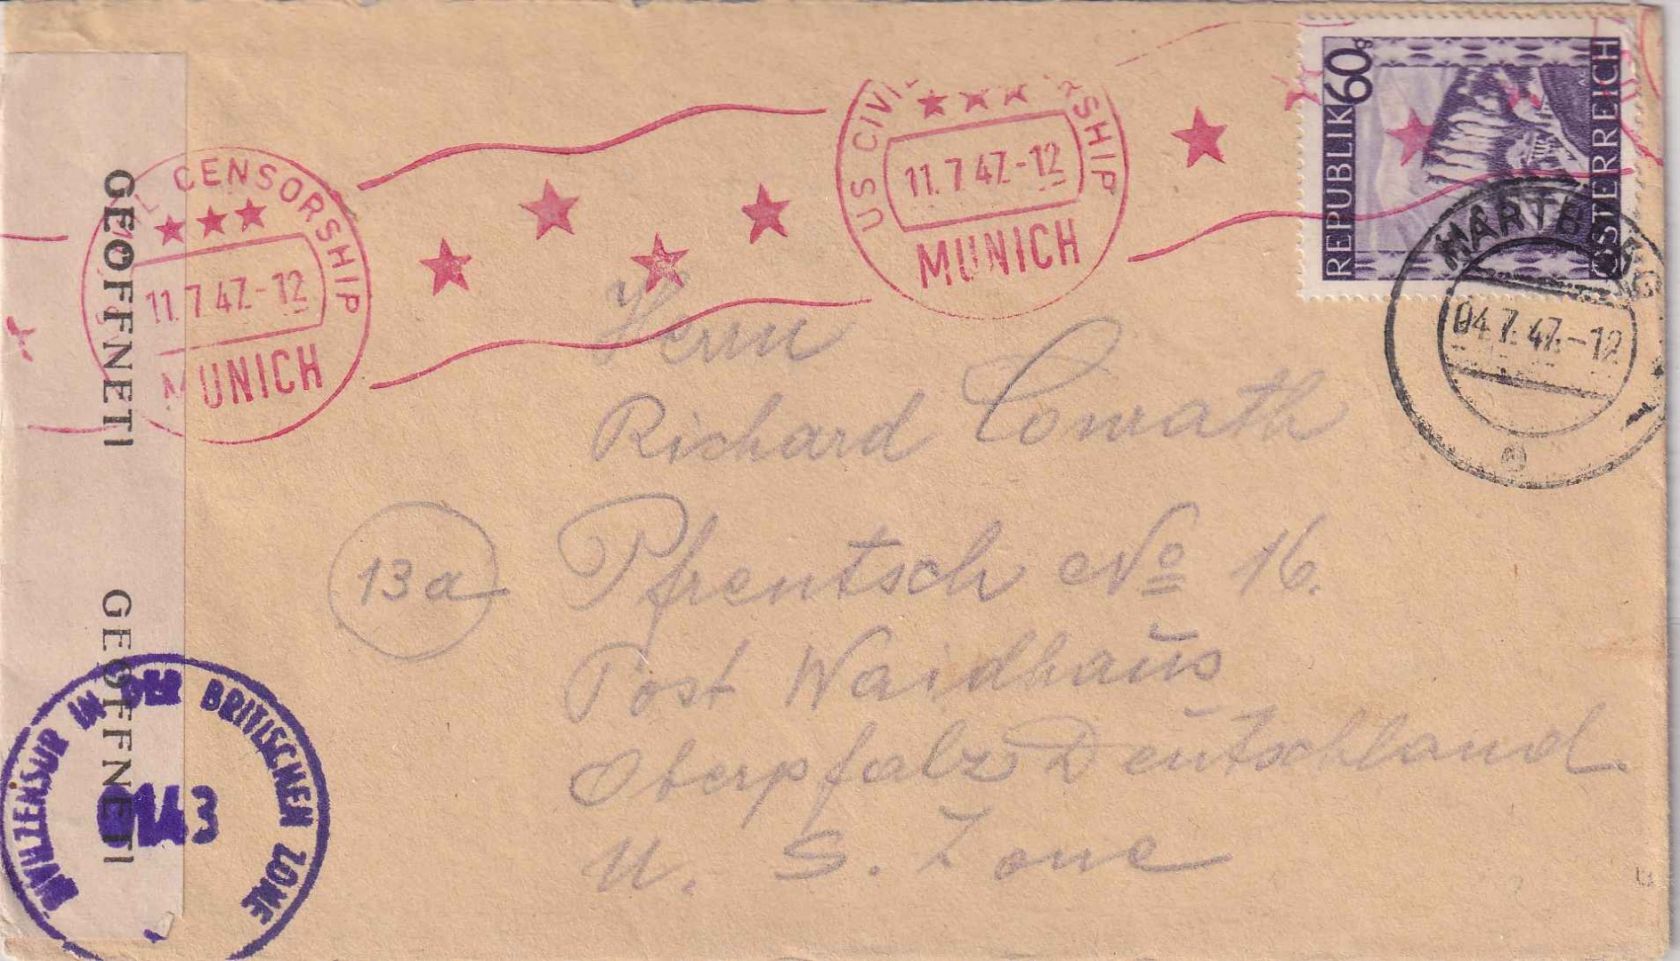 GEOFFNET!
GEOFFNET!
L CENSORSHIP
11.7.47.-12
MUNICH
US CIVIL SHIP
11.7.47.-12
MUNICH
60g
REPUBLIK
ÖSTERREICH
HARTBERG
04.7.47.-12
Herrn
Richard Conrath
13a
Pfrentsch No 16.
Post Waidhaus
Oberpfalz Deutschland.
U. S. Zone
ZIVILZENSUR IN DER BRITISCHEN ZONE